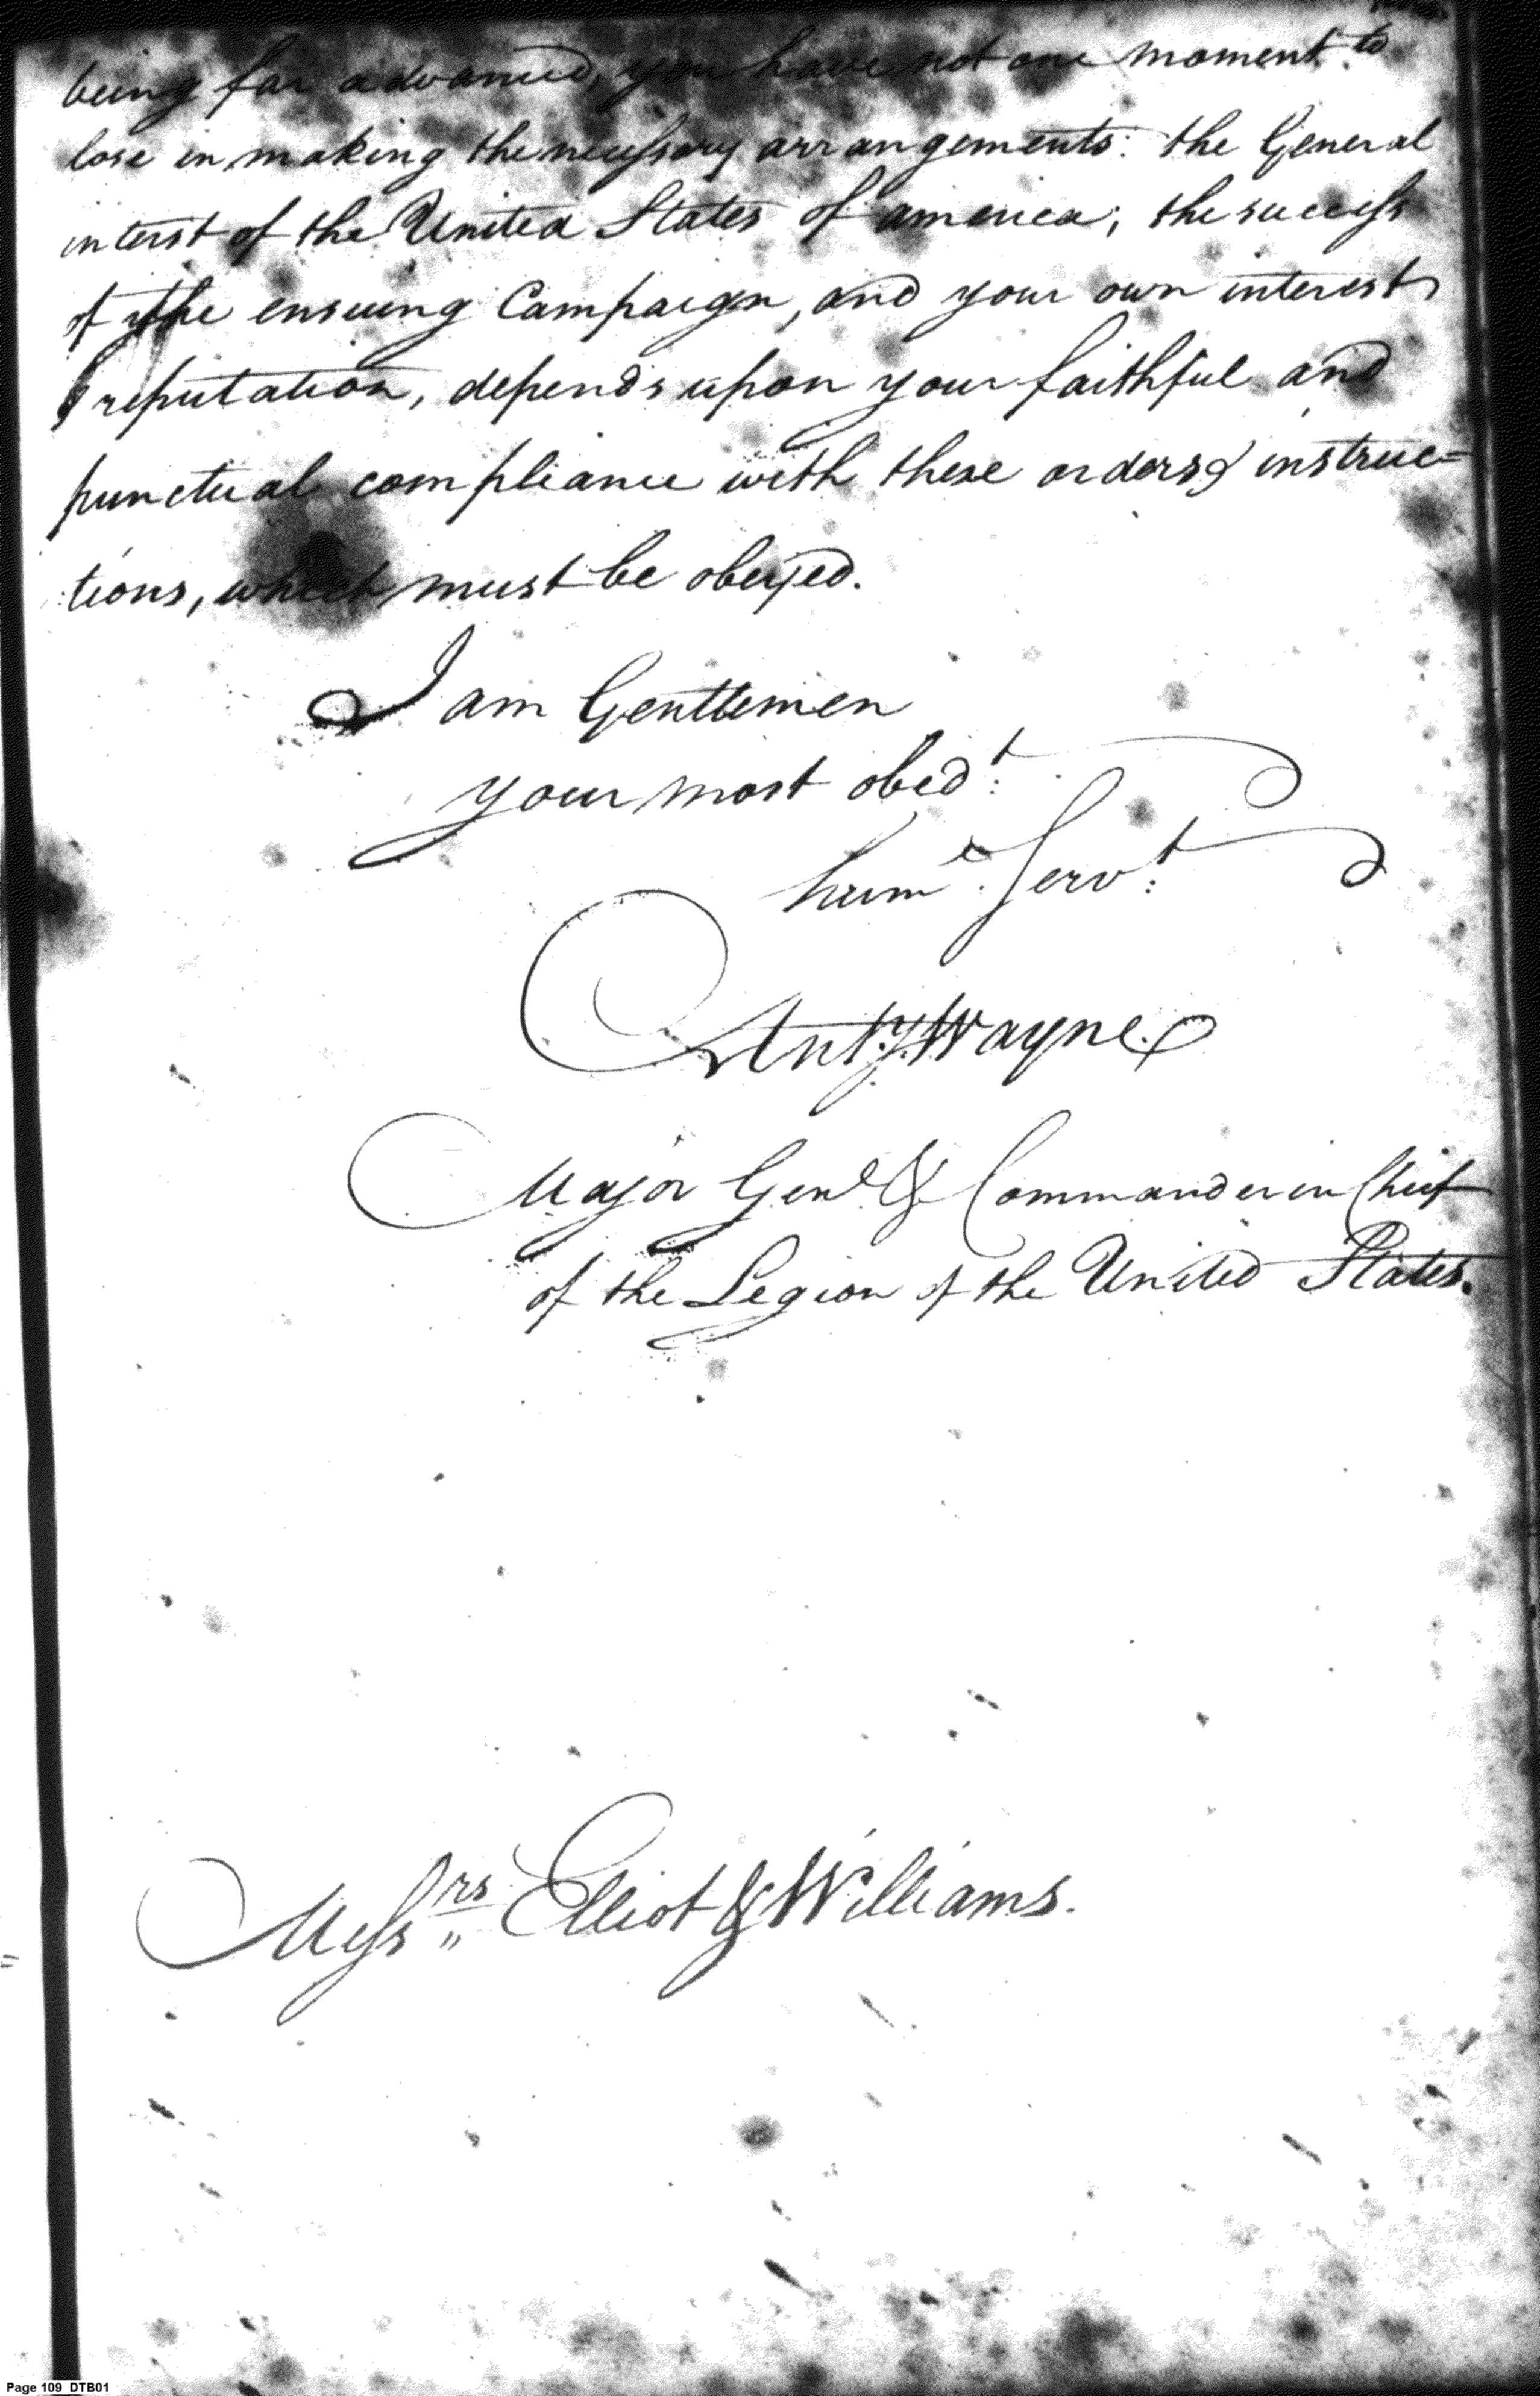 being far advanced, you have not one moment to
lose in making the necessary arrangements: the General
interst of the United States of america; the success
of the ensuing Campaign, and your own interest
& reputation, depends upon your faithful and
punctual compliance with these orders & instruc=
tions, which must be obeyed.
I am Gentlemen
your most obedt:
hume. Servt:
Anty. Wayne.
Major Genl. & Commander in Chief
of the Legion of the United States.
Messrs" Elliot & Williams.
Page 109 DTB01